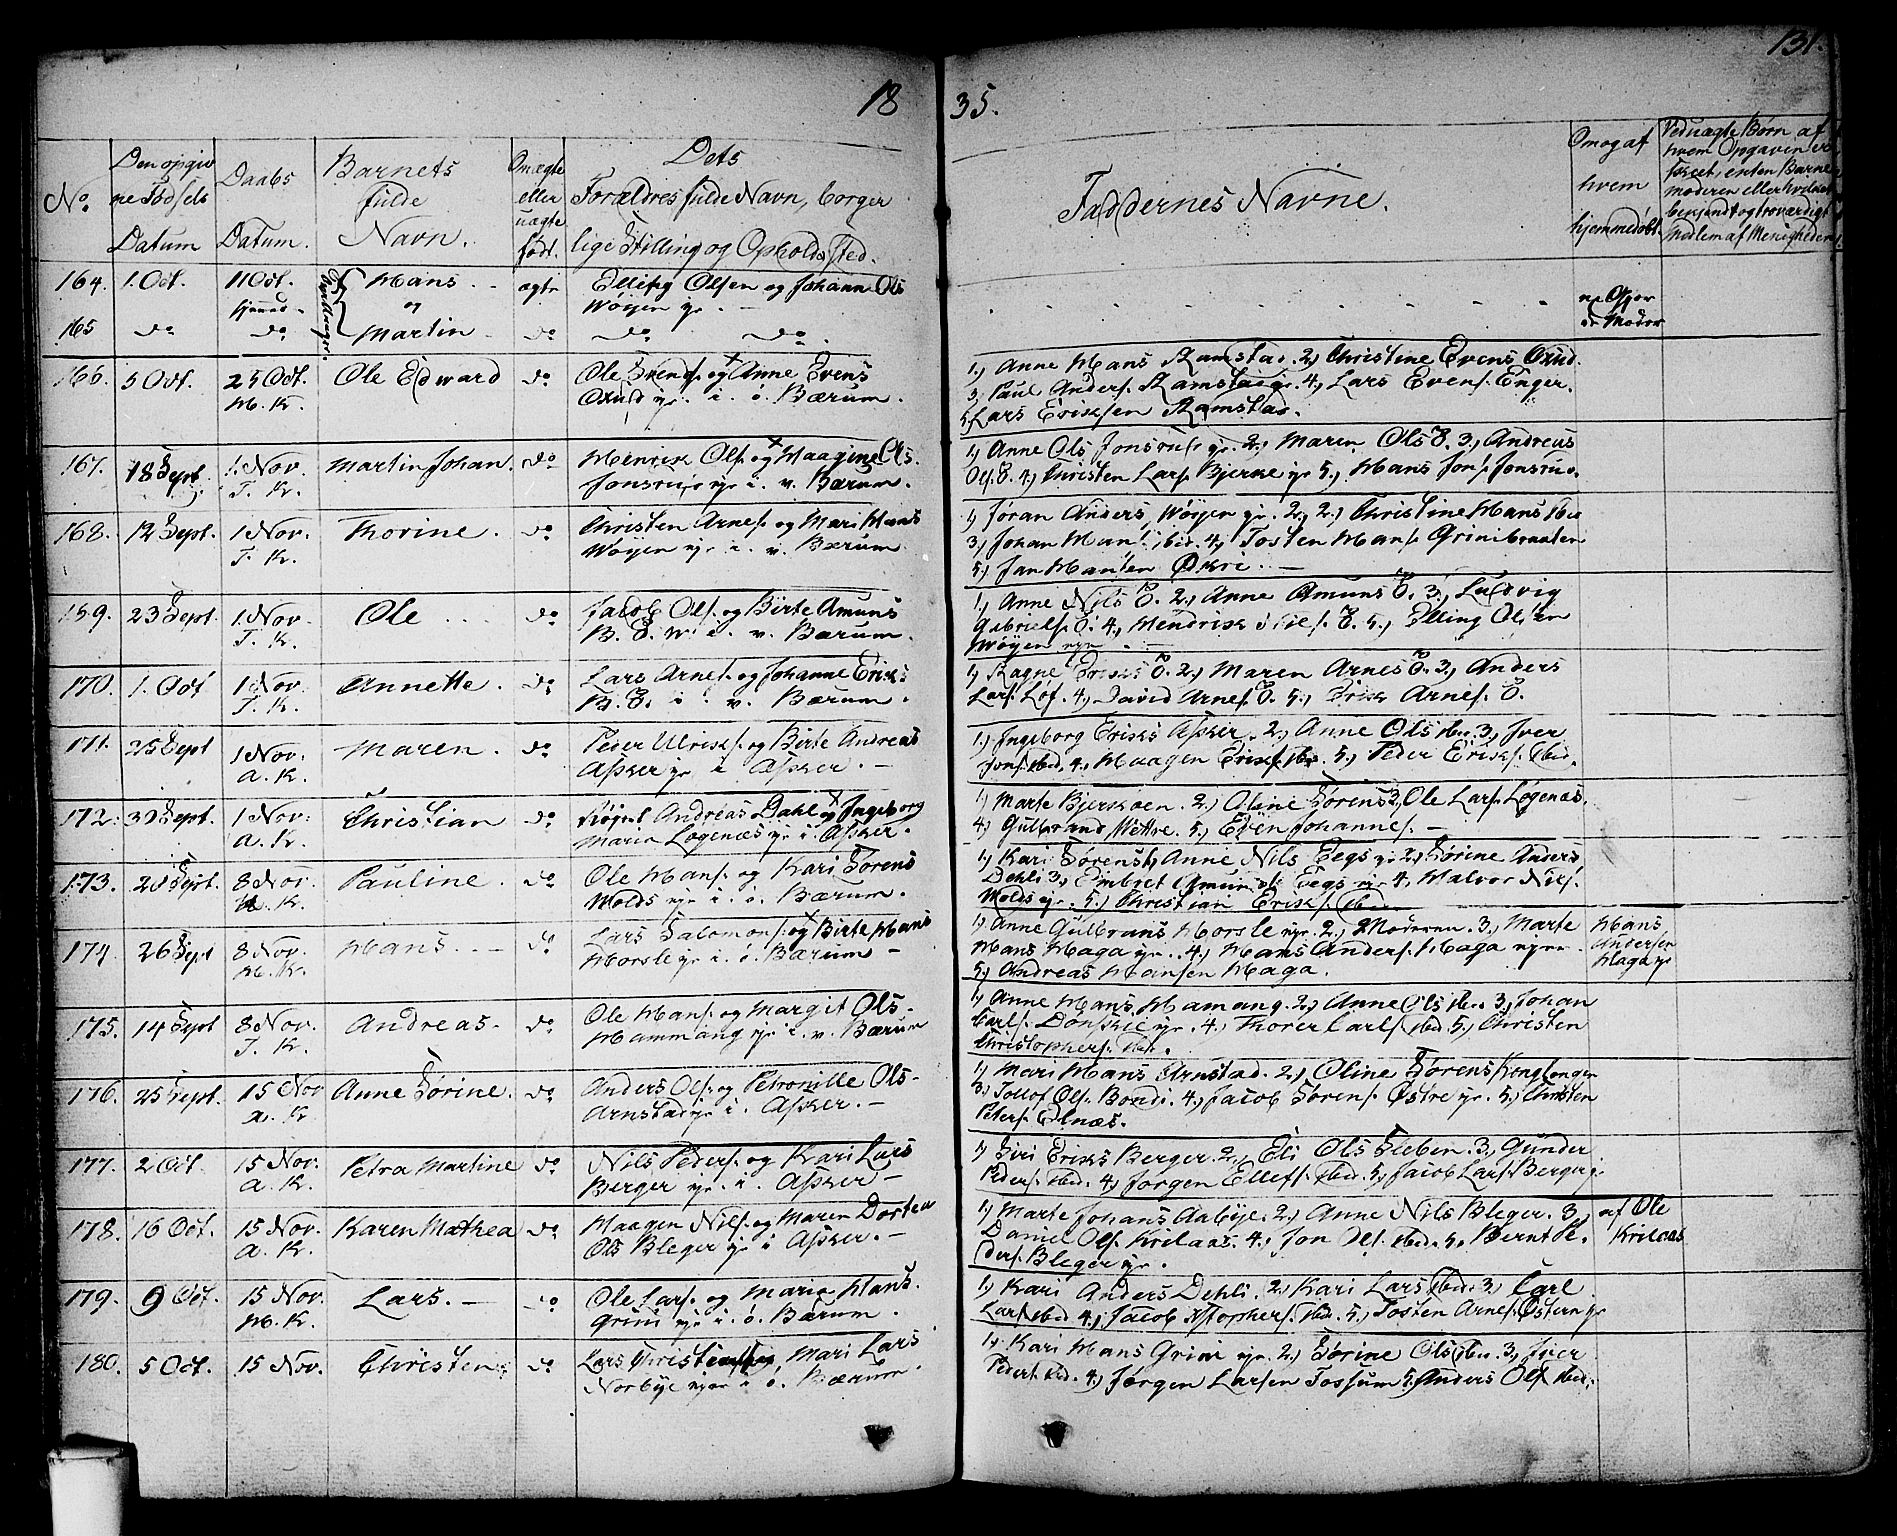 131.
18 35.
No.
Den opgivne Fødsels Datum
Daabs Datum.
Barnets fulde Navn.
Omægte eller uægte født.
Dets Forældres fulde Navn, borgerlige Stilling og Opholdssted.
Faddernes Navne.
Om og af hvem hjemmedøbt.
Ved uægte Børn af hvem Opgaven er skeet, enten Barnemoderen eller hvilket bekjendt og troværdigt Medlem af Menigheden
164. 1. Oct. 11 Oct. Hans og ægte Olsen og Johanne Ols
Wøyen
165 do do Martin do do do
166. 5 Oct. 25 Oct. Ole Edward do Ole Svends. og Anne Evens
H. K. Oxud gr. i. ö. Bærum.
1, Anne Hans Ramstad. 2, Christine Evens Oxud.
3, Paul Anders. Ramstad gr. 4, Lars Evens. Enger.
5, Lars Eriksen Ramstad.
167. 18 Sept. 1. Nov. Martin Johan. do Henrik Ols. og Haagine Ols.
T. K. Jonsrud gr i. v. Bærum.
1, Anne Ols Jonsrud gr. 2, Maren Ols E. 3, Andreas
Ols. E. 4, Christen Lars. Bjerke gr 5, Hans Jons. Jonsrud.
168. 12 Sept. 1 Nov. Thorine. do Christen Arnes. og Mari Hans
T. K. Wøyen gr i. v. Bærum.
1, Joran Anders Wøyen gr. 2, 2, Christine Hans ibid
3, Johan Hans. ibid. 4, Tosten Hans. Grinibraaten
5, Jan Hansen Økri. —
159. 23 Sept. 1. Nov. Ole ... do Jacob Ols. og Birte Amuns
T. K. B. E. W. i. v. Bærum.
1, Anne Nils E. 2, Anne Amuns E. 3, Ludvig
Gabriels. E. 4, Hendrik Nils. E. 5, Elling Olsen
Wøyen
170. 1. Oct 1 Nov. Annette. do Lars Arnes. og Johanne Eriks
T. K. B. E. i. v. Bærum.
1, Ragne Eriks E. 2, Maren Arnes E. 3, Anders
Lars. Løf. 4, David Arnes. E. 5, Erik Arnes. E.
171. 25 Sept 1 Nov. Maren. do Peder Ulriks. og Birte Andreas
A. K. Asker gr i. Asker. —
1, Ingeborg Eriks Asker. 2, Anne Ols ibid. 3, Iver
Jons. ibid. 4, Haagen Eriks. ibid 5, Peder Eriks. ibid.
172. 30 Sept. 1 Nov. Christian do Andreas Dahl og Ingeborg
A. K. Maria Løgenæs gr i. Asker.
1, Marte Bjerskoen. 2, Oline Sørens 3, Ole Lars. Løgenæs.
4, Gulbrand Wettre. 5, Even Johannes. —
173. 20 Sept. 8 Nov. Pauline. do Ole Hans. og Kari Sørens
H. K. Wolds gr i. ö. Bærum.
1, Kari Sørens, Anne Nils Eegs gr. 2, Sørine Anders
Dehli 3, Embret Eegs gr 4, Halvor Nils.
Wolds gr. 5, Christian Eriks. ibid.
174. 26 Sept 8 Nov. Hans. — do Lars Salomons. og Birte Hans
H. K. Horsle gr i. ö. Bærum —
1, Anne Gulbrans Horsle gr. 2, Moderen. 3, Marte
Hans Haga gr. 4, Hans Anders. Haga
5, Andreas Hansen Haga.
Hans Andersen Haga gr
175. 14 Sept 8 Nov. Andreas. do Ole Hans. og Margit Ols-
T. K. Hammang gr i. v. Bærum
1, Anne Hans Hamang. 2, Anne Ols ibid. 3, Johan
Carls. Dønskie gr. 4, Thorer Carls. ibid 5, Christen
Christophers. ibid.
176. 25 Sept. 15 Nov Anne Sørine. do Anders Ols. og Petronille Ols-
A. K. Arnstad gr i. Asker. —
1, Mari Hans Arnstad. 2, Oline Sørens Konglongen
3, Tollof Ols. Bondi. 4, Jacob Sørens. Østre gr. 5, Christen
Peters. Elnæs.
177. 2 Oct. 15 Nov. Petra Martine do Nils Peders. og Kari Lars
A. K. Berger gr. i. Asker —
1, Siri Eriks Berger. 2, Eli Ols Sleben. 3, Gunder
Peders. ibid. 4, Jørgen Ellefs. ibid. 5, Jacob Lars. Berger g.
178. 16 Oct. 15 Nov. Karen Mathea do Haagen Nils. og Maren Dortea
A. K. Ols Bleger gr i Asker. —
1, Marte Johans Aabye. 2, Anne Nils Bleger. 3,
Daniel Ols. Krilaas. 4, Jon Ols. ibid. 5, Bernt Pe-
ders. Bleger gr.
af Ole Krilaas
179. 9 Oct. 15 Nov. Lars. — do Ole Lars. og Maria Hans.
H. K. Grini gr. i. ö. Bærum.
1, Kari Anders Dehli. 2, Kari Lars ibid. 3, Carl
Lars. ibid 4, Jacob Xstophers. ibid. 5, Tosten Arnes. Østern gr
180. 5 Oct. 15 Nov. Christen do Lars Christens. og Mari Lars
Norbye i ö. Bærum
1, Kari Hans Grini gr. 2, Sørine Ols ibid. 3, Iver
Peders. ibid. 4, Jørgen Larsen Tossum 5, Anders Ols ibid.